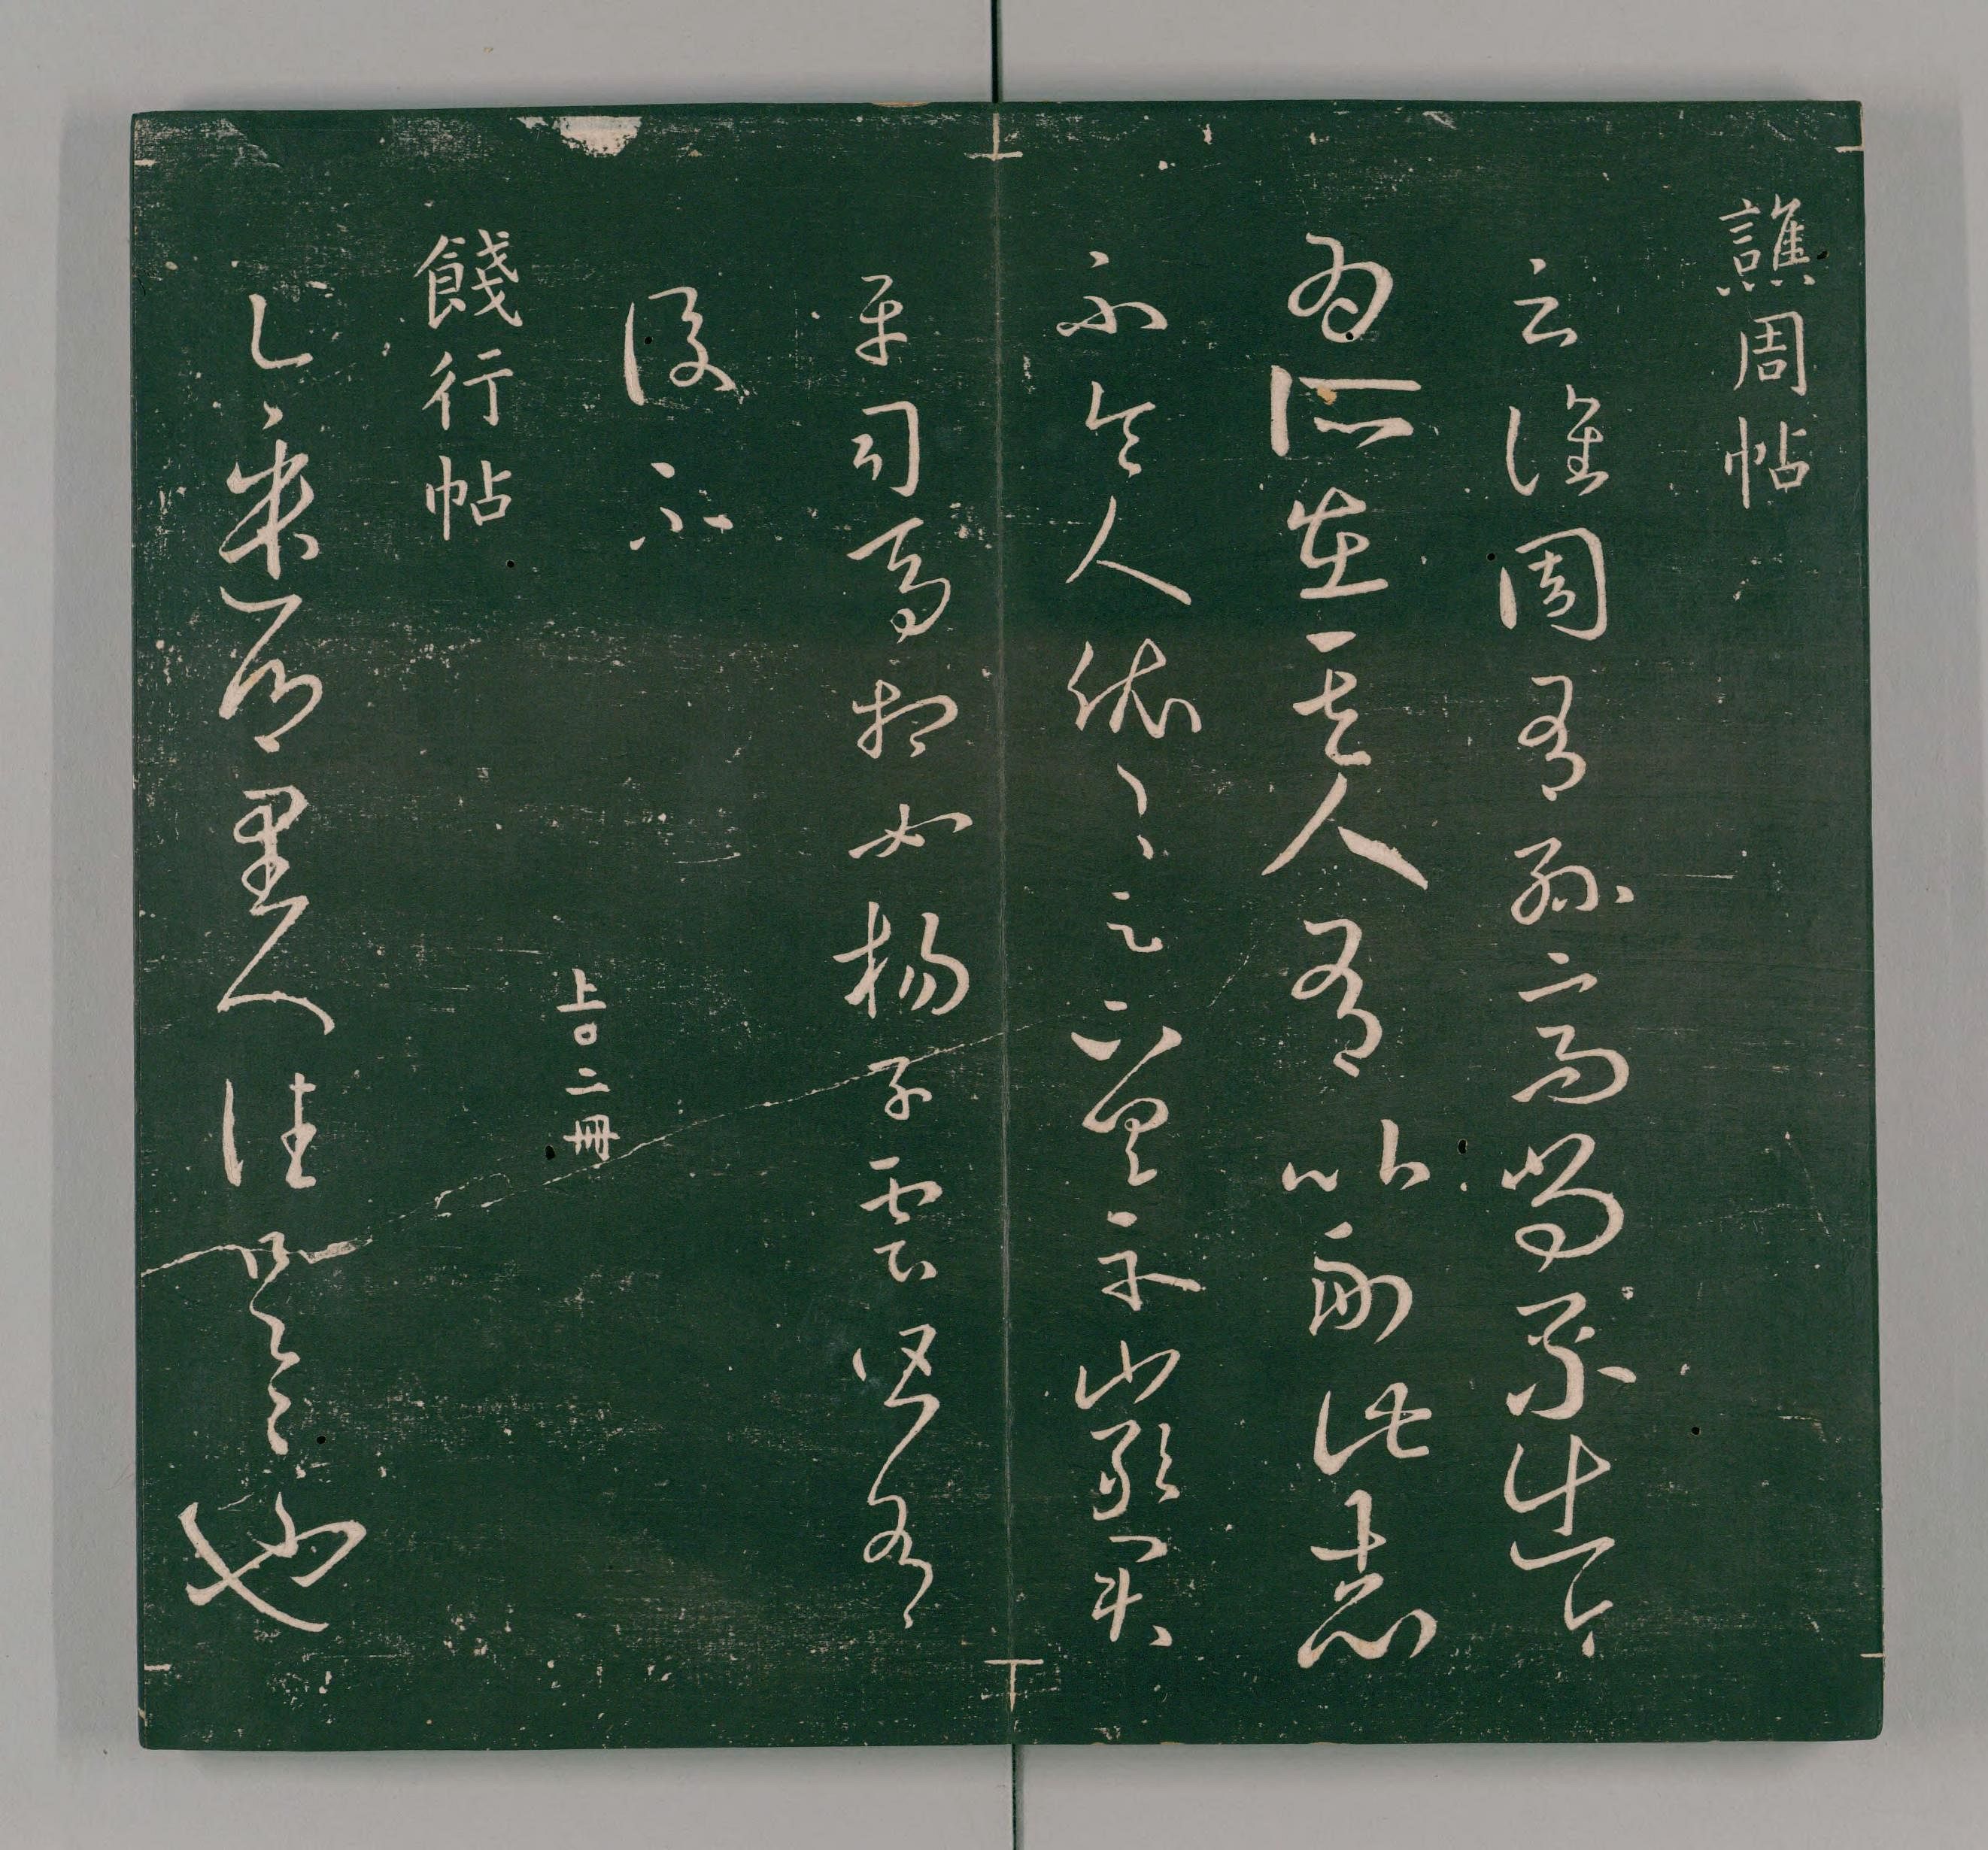 譙周帖
云譙周有孫高尚不出今
為所在其人有以副此志
不令人依〻足下具示嚴君
平司馬相如楊子雲皆有
後不
上〇二冊
餞行帖
人 也